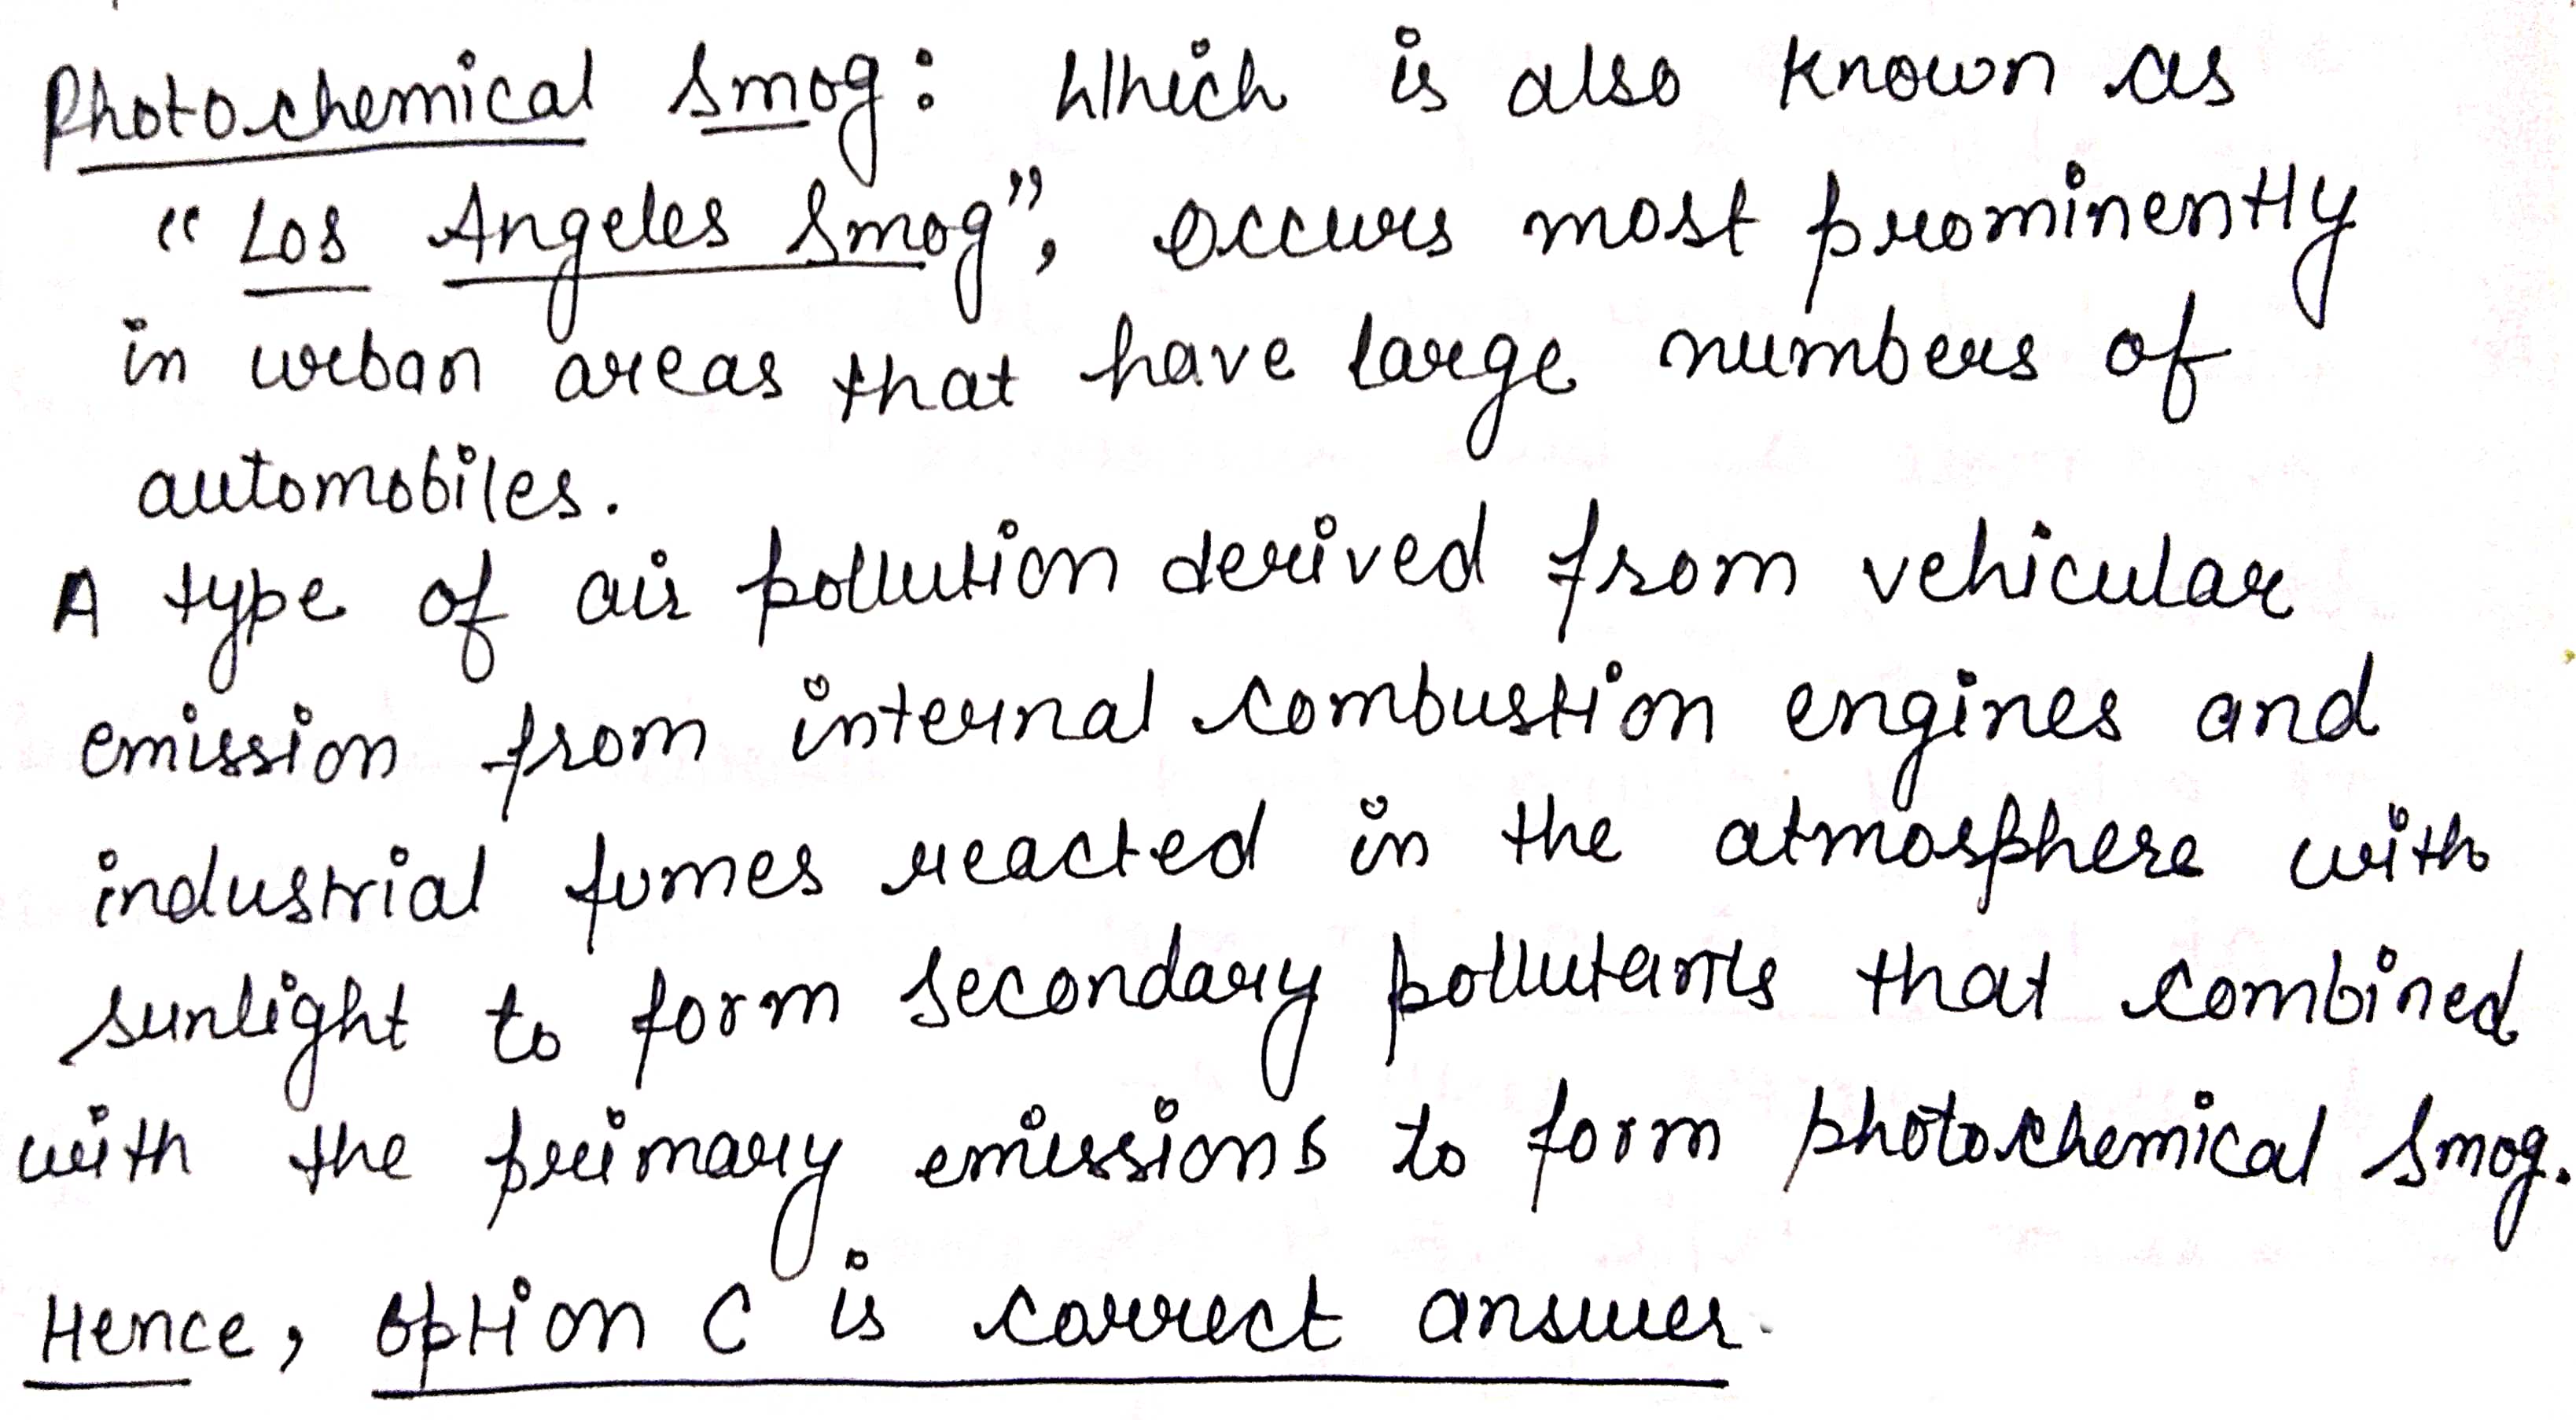 Photochemical Smog: Which is also known as
"Los Angeles Smog", occurs most prominently
in urban areas that have large numbers of
automobiles.
A type of air pollution derived from vehicular
emission from internal combustion engines and
industrial fumes reacted in the atmosphere with
sunlight to form secondary pollutants that combined
with the primary emissions to form photochemical smog.
Hence, option C is correct answer.